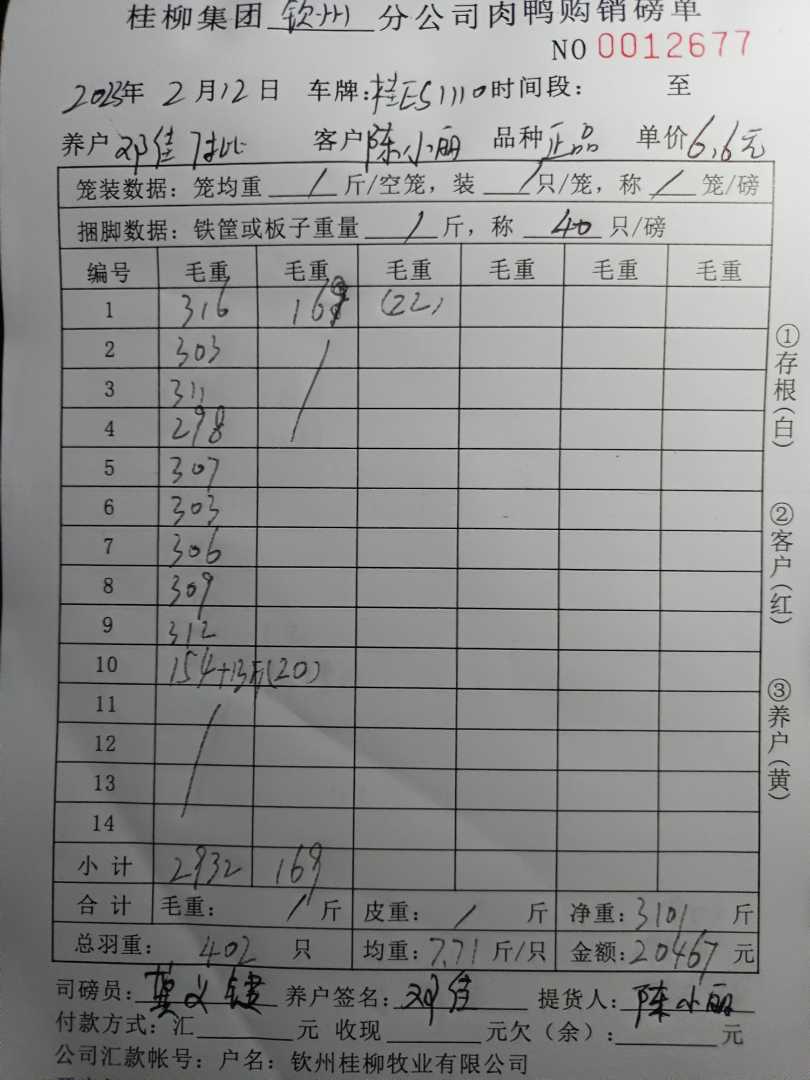 桂柳集团钦州分公司肉鸭购销磅单
NO 0012677
2023年 2月12日 车牌:桂ES1110 时间段: 至
养户 邓佳 客户 陈小丽 品种 正品 单价 6.6元
笼装数据: 笼均重 / 斤/空笼, 装 / 只/笼, 称 / 笼/磅
捆脚数据: 铁筐或板子重量 / 斤, 称 40 只/磅
编号 毛重 毛重 毛重 毛重 毛重 毛重
1 316 169 (22)
2 303 /
3 311
4 298
5 307
6 303
7 306
8 309
9 312
10 154+13斤(20)
11 /
12
13
14
小计 2932 169
合计 毛重: / 斤 皮重: / 斤 净重: 3101 斤
总羽重: 402 只 均重: 7.71 斤/只 金额: 20467 元
司磅员: 龚义键 养户签名: 邓佳 提货人: 陈小丽
付款方式: 汇 元 收现 元欠(余): 元
公司汇款帐号: 户名: 钦州桂柳牧业有限公司
①存根(白)
②客户(红)
③养户(黄)